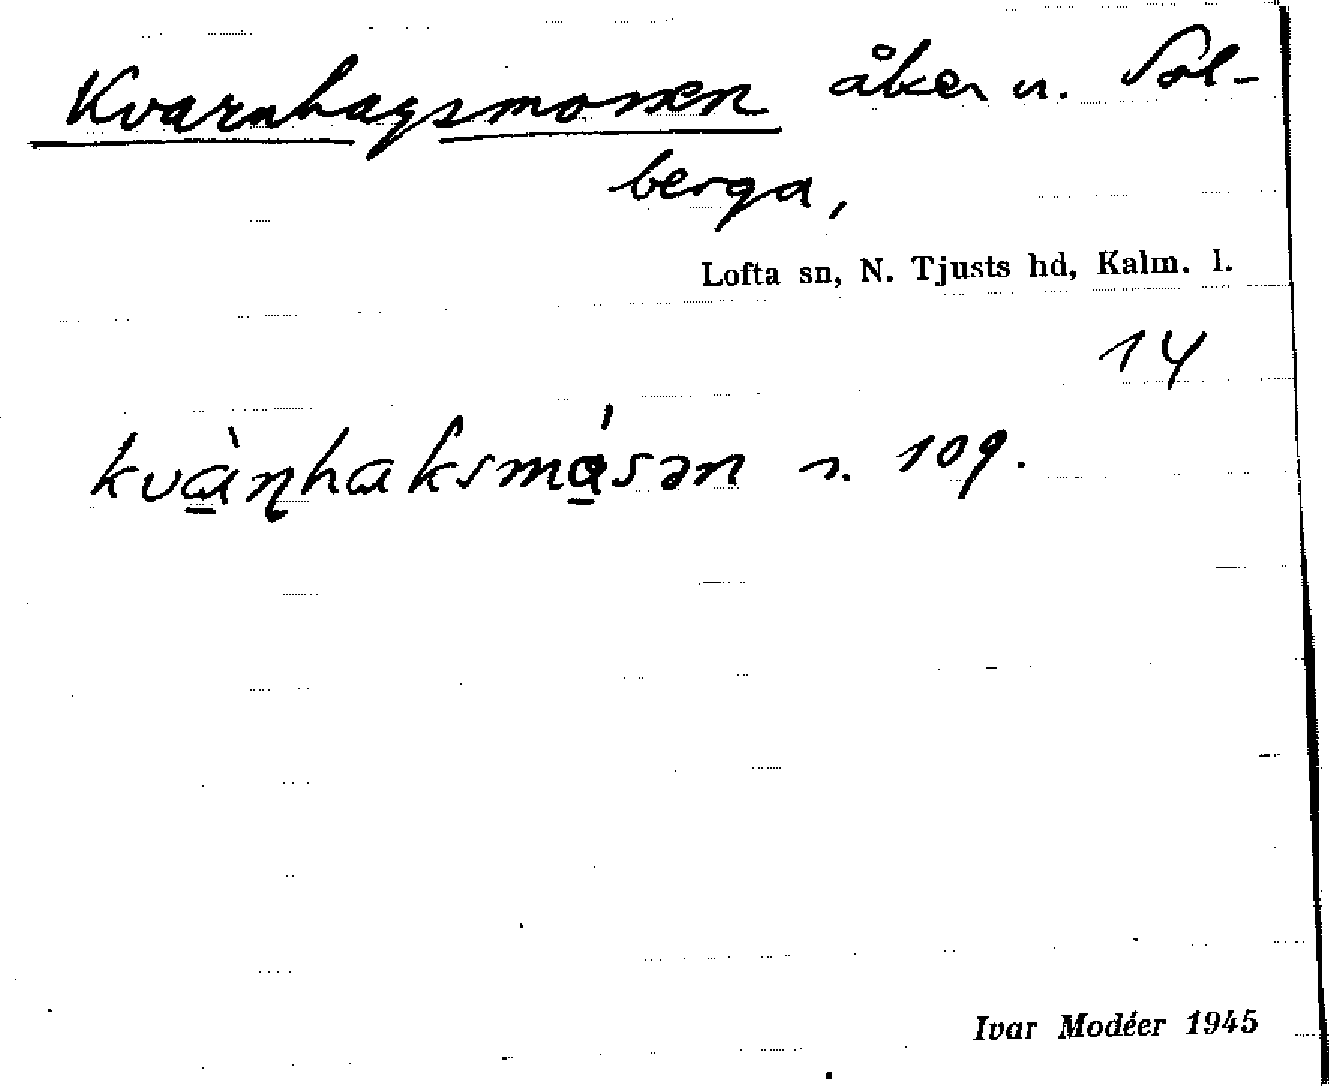 Kvarnhagsmossen åker u. Sol-
berga,
Lofta sn, N. Tjusts hd, Kalm. l.
14
kvàɳhaksmásən s. 109.
Ivar Modéer 1945